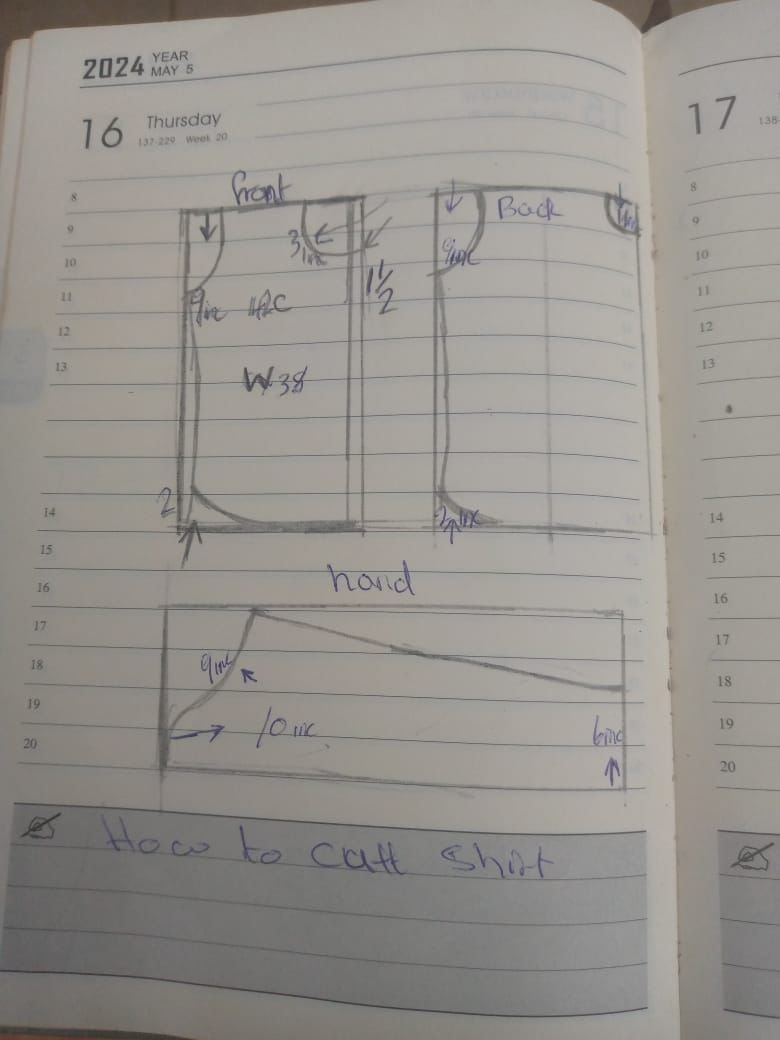 2024 YEAR
MAY 5
16 Thursday
137-229 Week 20
17
138-
8
9
10
11
12
13
14
15
16
17
18
19
20
front
3 inc
1 1/2
9 inc 42C
W 38
2
Back
9 inc
2 inc
hand
9 inc
10 inc
6 inc
How to catt Shirt
8
9
10
11
12
13
14
15
16
17
18
19
20